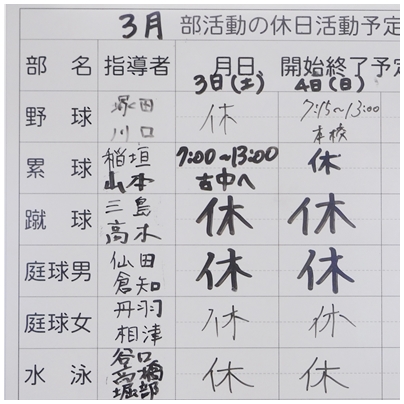 3月 部活動の休日活動予定
部名 指導者 月日 開始終了予定
3日(土) 4日(日)
野球 塚田 川口 休 7:15~13:00 本校
累球 稲垣 山本 7:00~13:00 古中へ 休
蹴球 三島 高木 休 休
庭球男 仙田 倉知 休 休
庭球女 丹羽 相津 休 休
水泳 谷口 高橋 堀部 休 休